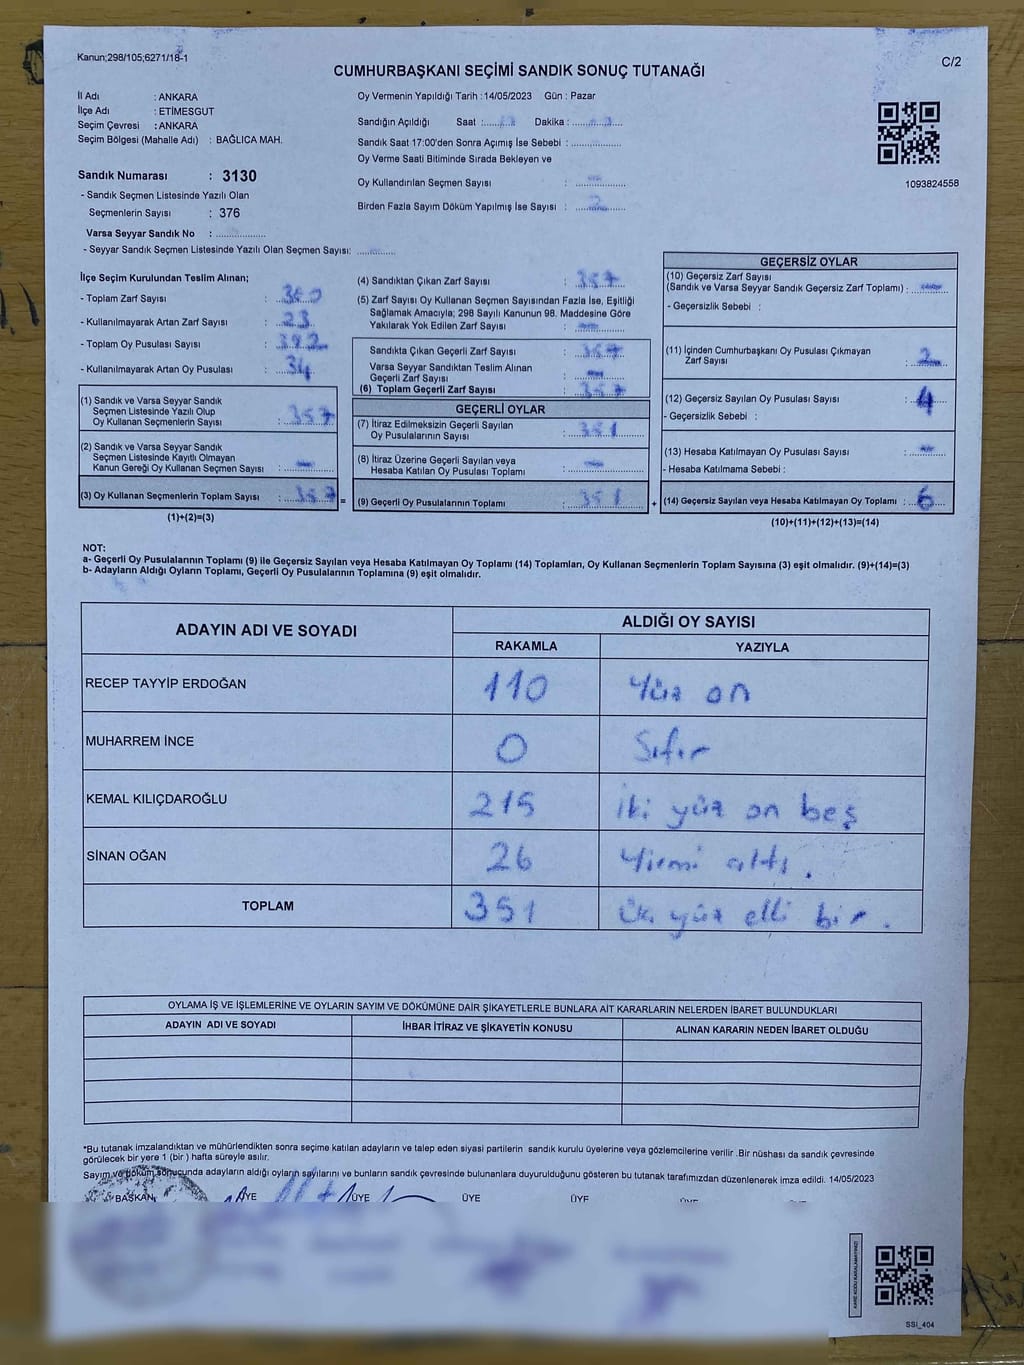 Kanun;298/105;6271/18-1
C/2
CUMHURBAŞKANI SEÇİMİ SANDIK SONUÇ TUTANAĞI
İl Adı : ANKARA
İlçe Adı : ETİMESGUT
Seçim Çevresi : ANKARA
Seçim Bölgesi (Mahalle Adı) : BAĞLICA MAH.
Sandık Numarası : 3130
- Sandık Seçmen Listesinde Yazılı Olan
Seçmenlerin Sayısı : 376
Varsa Seyyar Sandık No : ................
- Seyyar Sandık Seçmen Listesinde Yazılı Olan Seçmen Sayısı: ............
Oy Vermenin Yapıldığı Tarih :14/05/2023 Gün : Pazar
Sandığın Açıldığı Saat : Dakika :
Sandık Saat 17:00'den Sonra Açımış İse Sebebi : ................
Oy Verme Saati Bitiminde Sırada Bekleyen ve
Oy Kullandırılan Seçmen Sayısı : —
Birden Fazla Sayım Döküm Yapılmış İse Sayısı : 2
1093824558
İlçe Seçim Kurulundan Teslim Alınan;
- Toplam Zarf Sayısı :
- Kullanılmayarak Artan Zarf Sayısı : 23
- Toplam Oy Pusulası Sayısı :
- Kullanılmayarak Artan Oy Pusulası : 34
(1) Sandık ve Varsa Seyyar Sandık
Seçmen Listesinde Yazılı Olup
Oy Kullanan Seçmenlerin Sayısı : 357
(2) Sandık ve Varsa Seyyar Sandık
Seçmen Listesinde Kayıtlı Olmayan
Kanun Gereği Oy Kullanan Seçmen Sayısı : —
(3) Oy Kullanan Seçmenlerin Toplam Sayısı : 357 =
(1)+(2)=(3)
(4) Sandıktan Çıkan Zarf Sayısı : 357
(5) Zarf Sayısı Oy Kullanan Seçmen Sayısından Fazla İse, Eşitliği
Sağlamak Amacıyla; 298 Sayılı Kanunun 98. Maddesine Göre
Yakılarak Yok Edilen Zarf Sayısı : —
Sandıkta Çıkan Geçerli Zarf Sayısı : 357
Varsa Seyyar Sandıktan Teslim Alınan
Geçerli Zarf Sayısı : —
(6) Toplam Geçerli Zarf Sayısı : 357
GEÇERLİ OYLAR
(7) İtiraz Edilmeksizin Geçerli Sayılan
Oy Pusulalarının Sayısı : 351
(8) İtiraz Üzerine Geçerli Sayılan veya
Hesaba Katılan Oy Pusulası Toplamı : —
(9) Geçerli Oy Pusulalarının Toplamı : 351 +
GEÇERSİZ OYLAR
(10) Geçersiz Zarf Sayısı
(Sandık ve Varsa Seyyar Sandık Geçersiz Zarf Toplamı) : —
- Geçersizlik Sebebi :
(11) İçinden Cumhurbaşkanı Oy Pusulası Çıkmayan
Zarf Sayısı : 2
(12) Geçersiz Sayılan Oy Pusulası Sayısı : 4
- Geçersizlik Sebebi :
(13) Hesaba Katılmayan Oy Pusulası Sayısı : —
- Hesaba Katılmama Sebebi :
(14) Geçersiz Sayılan veya Hesaba Katılmayan Oy Toplamı : 6
(10)+(11)+(12)+(13)=(14)
NOT:
a- Geçerli Oy Pusulalarının Toplamı (9) ile Geçersiz Sayılan veya Hesaba Katılmayan Oy Toplamı (14) Toplamları, Oy Kullanan Seçmenlerin Toplam Sayısına (3) eşit olmalıdır. (9)+(14)=(3)
b- Adayların Aldığı Oyların Toplamı, Geçerli Oy Pusulalarının Toplamına (9) eşit olmalıdır.
ADAYIN ADI VE SOYADI ALDIĞI OY SAYISI
RAKAMLA YAZIYLA
RECEP TAYYİP ERDOĞAN 110 Yüz on
MUHARREM İNCE 0 Sıfır
KEMAL KILIÇDAROĞLU 215 iki yüz on beş
SİNAN OĞAN 26 Yirmi altı.
TOPLAM 351 üç yüz elli bir.
OYLAMA İŞ VE İŞLEMLERİNE VE OYLARIN SAYIM VE DÖKÜMÜNE DAİR ŞİKAYETLERLE BUNLARA AİT KARARLARIN NELERDEN İBARET BULUNDUKLARI
ADAYIN ADI VE SOYADI İHBAR İTİRAZ VE ŞİKAYETİN KONUSU ALINAN KARARIN NEDEN İBARET OLDUĞU
*Bu tutanak imzalandıktan ve mühürlendikten sonra seçime katılan adayların ve talep eden siyasi partilerin sandık kurulu üyelerine veya gözlemcilerine verilir .Bir nüshası da sandık çevresinde
görülecek bir yere 1 (bir ) hafta süreyle asılır.
Sayım ve döküm sonucunda adayların aldığı oyların sayılarını ve bunların sandık çevresinde bulunanlara duyurulduğunu gösteren bu tutanak tarafımızdan düzenlenerek imza edildi. 14/05/2023
BAŞKAN ÜYE ÜYE ÜYE ÜYE
SSİ_404